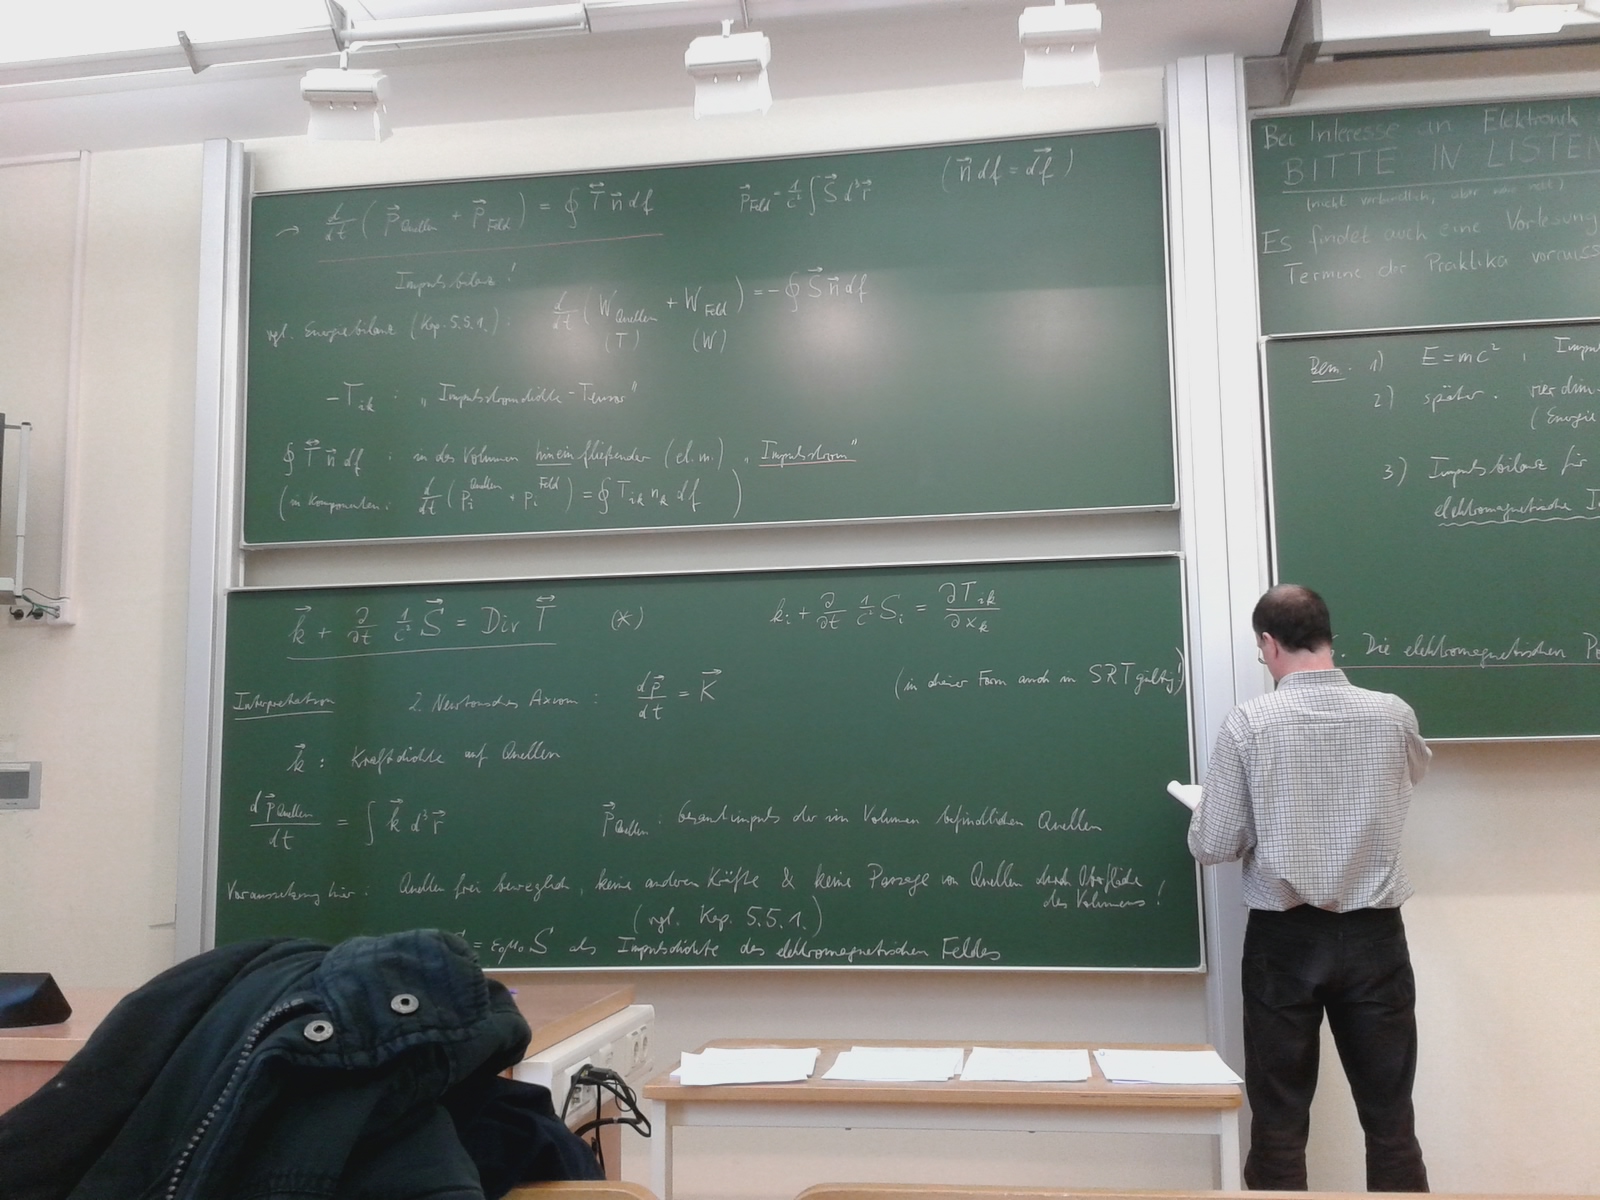 → d/dt ( p⃗_Quellen + p⃗_Feld ) = ∮ T⃡ n⃗ df    p⃗_Feld = 1/c² ∫ S⃗ d³r⃗    ( n⃗ df = d⃗f )
Impulsbilanz!
vgl. Energiebilanz (Kap. 5.5.1.) : d/dt ( W_Quellen + W_Feld ) = - ∮ S⃗ n⃗ df
(T) (W)
-T_ik : „Impulsstromdichte-Tensor"
∮ T⃡ n⃗ df : in das Volumen hineinfließender (el.m.) „Impulsstrom"
(in Komponenten: d/dt ( p_i^Quellen + p_i^Feld ) = ∮ T_ik n_k df )
k⃗ + ∂/∂t 1/c² S⃗ = Div T⃡ (*)    k_i + ∂/∂t 1/c² S_i = ∂T_ik/∂x_k
Interpretation 2. Newtonsches Axiom : dp⃗/dt = K⃗ (in dieser Form auch in SRT gültig!)
k⃗ : Kraftdichte auf Quellen
dp⃗_Quellen/dt = ∫ k⃗ d³r⃗    p⃗_Quellen : Gesamtimpuls der im Volumen befindlichen Quellen
Voraussetzung hier : Quellen frei beweglich, keine anderen Kräfte & keine Passage von Quellen durch Oberfläche
des Volumens !
(vgl. Kap. 5.5.1.)
= ε₀μ₀ S⃗ als Impulsdichte des elektromagnetischen Feldes
Bei Interesse an Elektronik
BITTE IN LISTEN
(nicht verbindlich, aber
Es findet auch eine Vorlesung
Termine der Praktika
Bem. 1) E = mc² , Impu
2) später . vierdim
(Energie
3) Impulsbilanz für
elektromagnetische
. Die elektromagnetischen Po